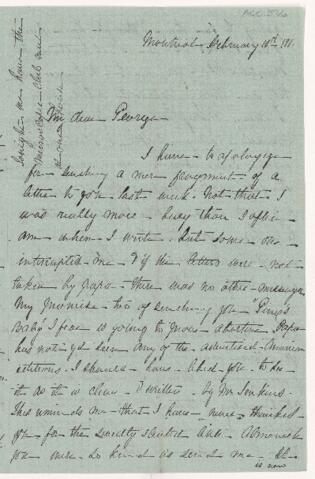 Montreal February 18th 181
My dear George
I have to apologize
for sending a mere fragment of a
letter to you last week. Not that I
was really more busy than I often
am when I write but some one
interrupted me & if the letter were not
taken by papa there was no other
My promise too of sending you
Baby I fear is going to prove abortive Papa
has not yet seen any of the advertised
editions. I should have liked you to see
it as it is clever & written by Mr Jenkins
This reminds me that I have never thanked
you for the sweetly scented Almanack
you were so kind as send me
is now
to-night we have the
Microscopic Club and